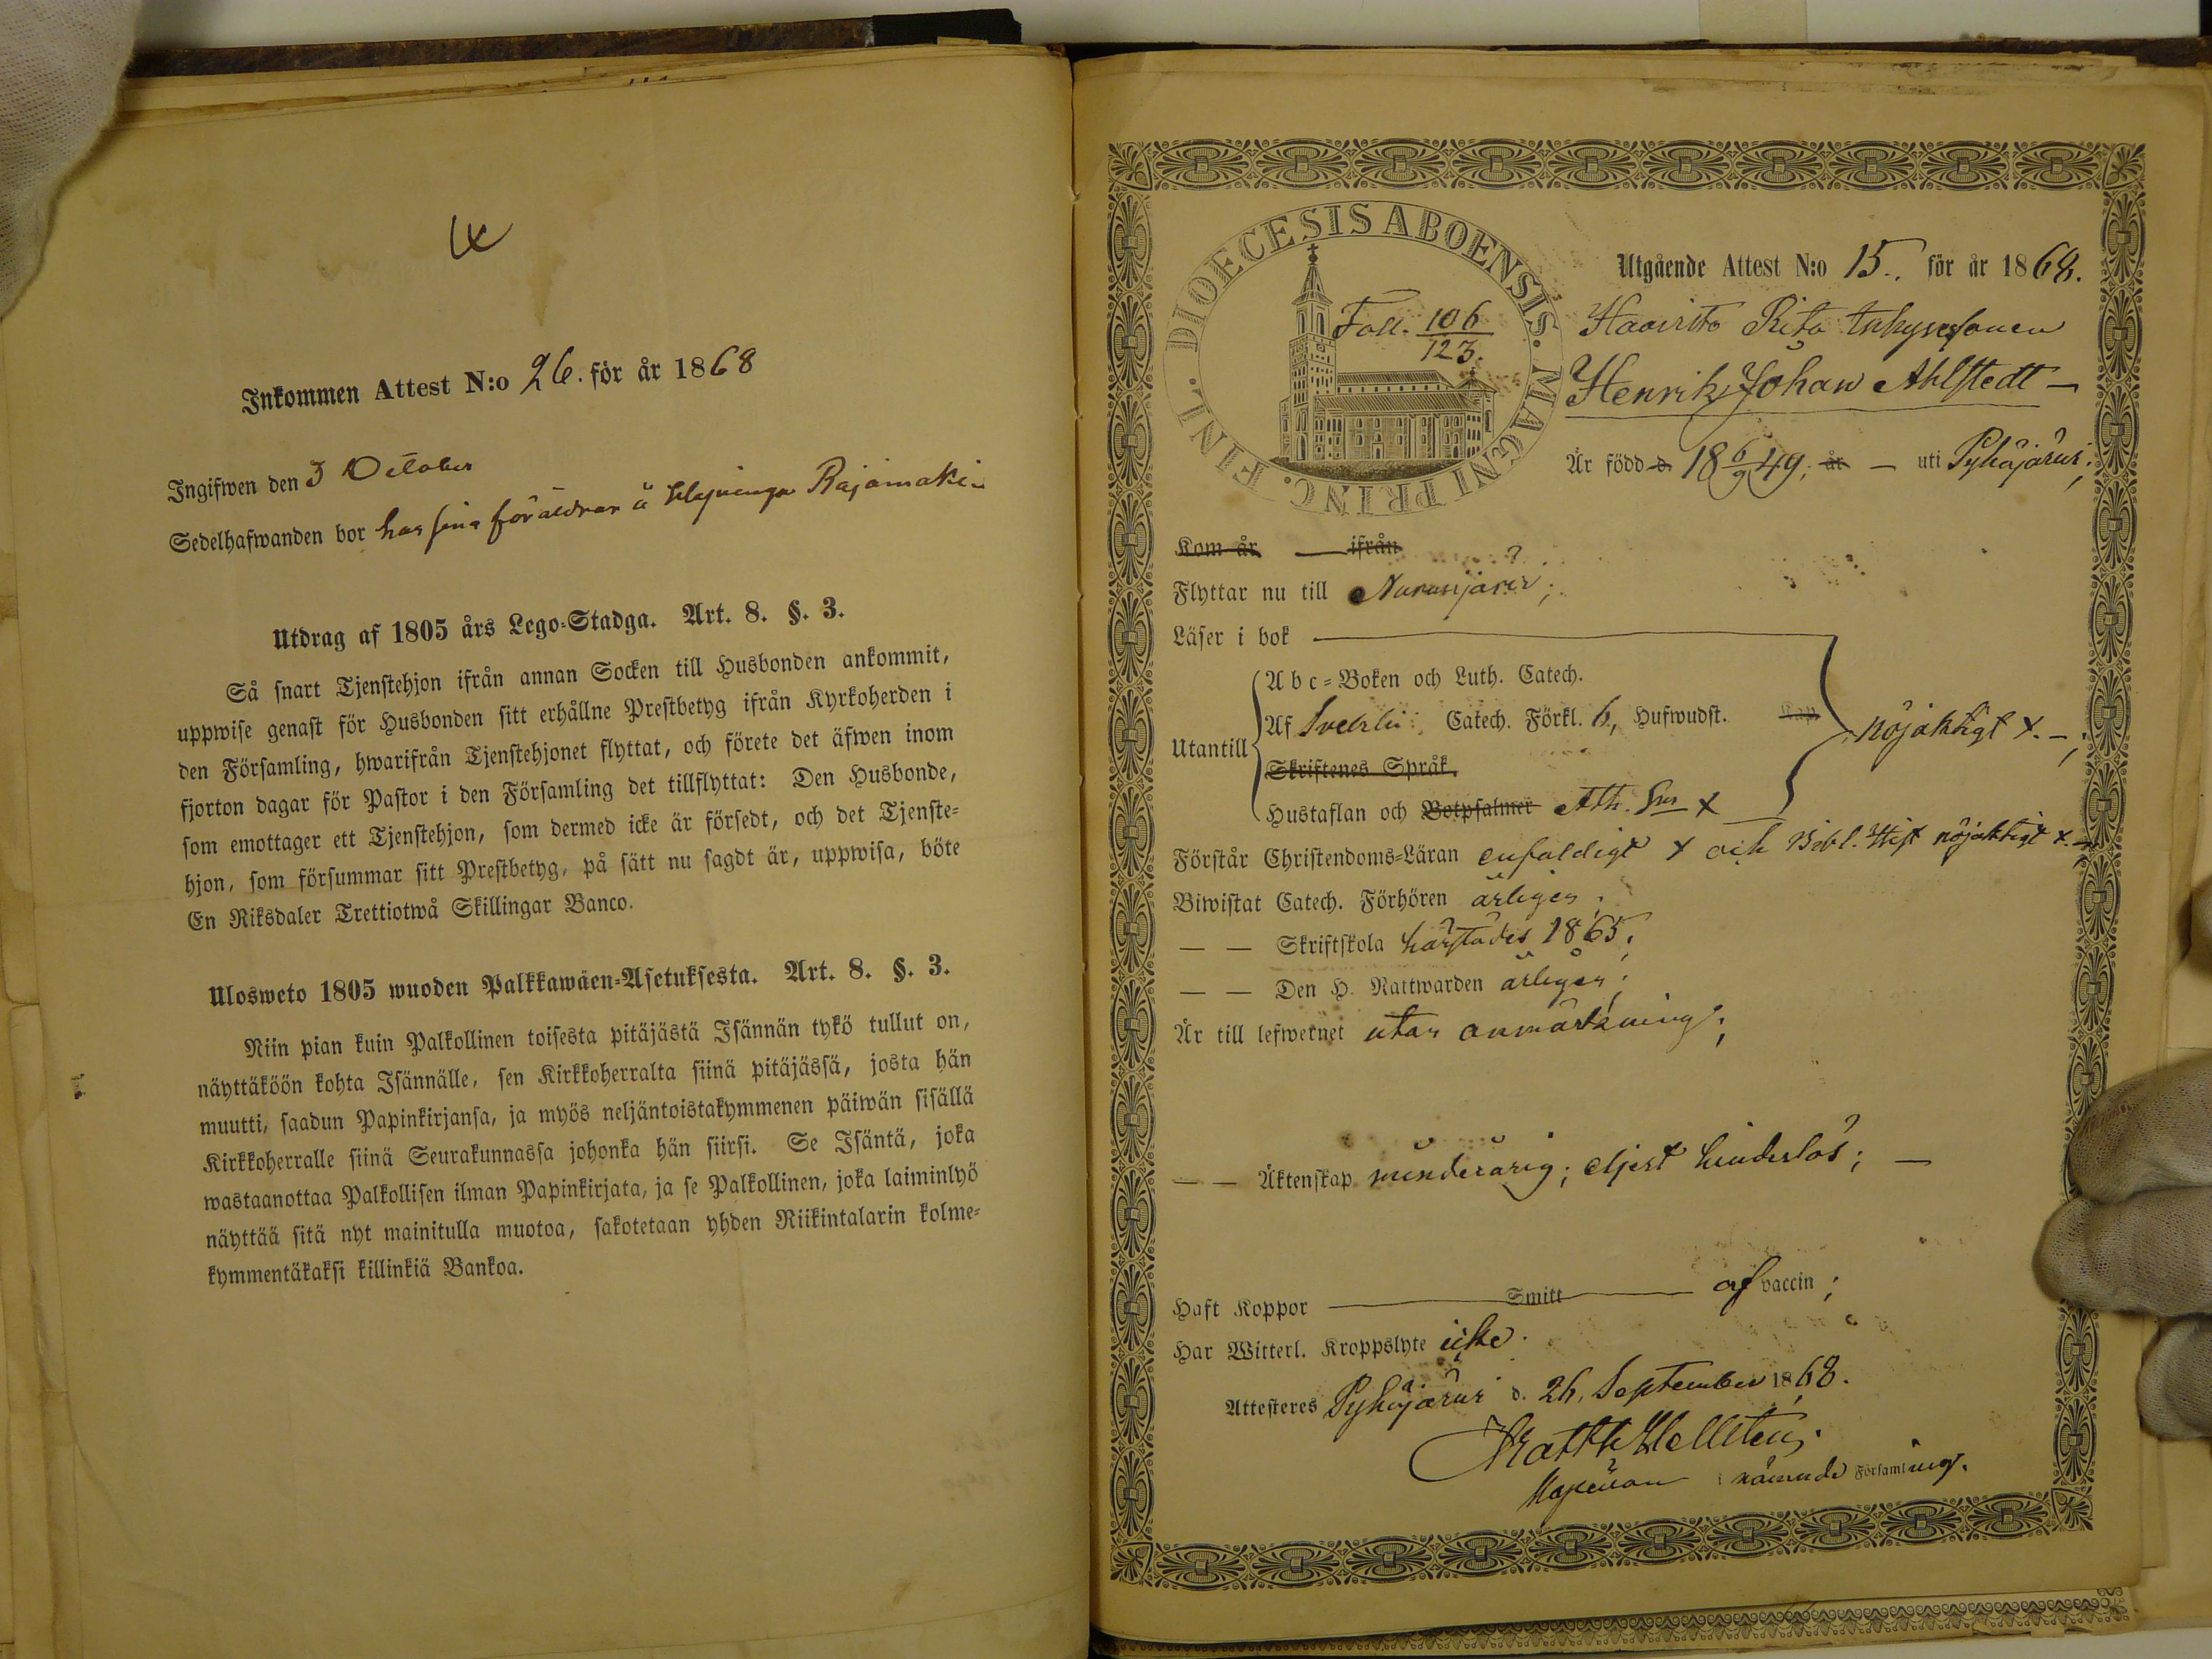 Inkommen Attest N:o 26. för år 1868
Ingifwen den 3 October
Sedelhafwanden bor hos sina föräldrar å Rajamäki
Utdrag af 1805 års Lego-Stadga. Art. 8. §. 3.
Så snart Tjenstehjon ifrån annan Socken till Husbonden ankommit,
uppwise genast för Husbonden sitt erhållne Prestbetyg ifrån Kyrkoherden i
den Församling, hwarifrån Tjenstehjonet flyttat, och förete det äfwen inom
fjorton dagar för Pastor i den Församling det tillflyttat: Den Husbonde,
som emottager ett Tjenstehjon, som dermed icke är försedt, och det Tjenste-
hjon, som försummar sitt Prestbetyg, på sätt nu sagdt är, uppwisa, böte
En Riksdaler Trettiotwå Skillingar Banco.
Ulosweto 1805 wuoden Palkkawäen-Asetuksesta. Art. 8. §. 3.
Niin pian kuin Palkollinen toisesta pitäjästä Isännän tykö tullut on,
näyttäköön kohta Isännälle, sen Kirkkoherralta siinä pitäjässä, josta hän
muutti, saadun Papinkirjansa, ja myös neljäntoistakymmenen päiwän sisällä
Kirkkoherralle siinä Seurakunnassa johonka hän siirsi. Se Isäntä, joka
wastaanottaa Palkollisen ilman Papinkirjata, ja se Palkollinen, joka laiminlyö
näyttää sitä nyt mainitulla muotoa, sakotetaan yhden Riikintalarin kolme-
kymmentäkaksi killinkiä Bankoa.
DIOECESIS ABOENSIS. MAGNI PRINC. FINL.
Foll. 106/123.
Utgående Attest N:o 15. för år 1868.
Haavisto
Henrik Johan Ahlstedt —
Är född d. 18 6/9 49; år — uti Pyhäjärvi;
Kom år — ifrån
Flyttar nu till Nurmijärvi;
Läser i bok
Abc-Boken och Luth. Catech.
Utantill Af Svebelii Catech. Förkl. 6, Hufwudst. Kap nöjaktigt +. —;
Skriftenes Språk.
Hustaflan och Botpsalmer Ath. +
Förstår Christendoms-Läran enfaldigt + och Bibl. Hist nöjaktigt +. —
Biwistat Catech. Förhören årligen;
— — Skriftskola härstädes 1865;
— — Den H. Nattwarden årligen;
Är till lefwernet utan anmärkning;
— — Äktenskap minderårig; eljest hinderlös; —
Haft Koppor Smitt af vaccin;
Har Witterl. Kroppslyte icke.
Attesteres Pyhäjärvi d. 26. September 1868.
Matth Hellsten,
Kapellan i nämnde Församling.